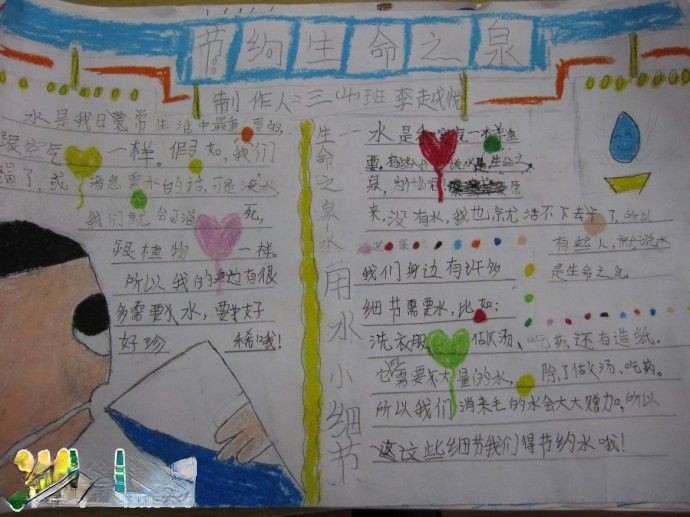 节约生命之泉
制作人:三(4)班 李越悦
水是我日常生活中最重要的,
跟空气一样。假如,我们
渴了,或者急需水的话,可是没水,
我们就会渴死,
跟植物一样。
所以我的身边有很
多需要水,要好
好珍稀哦!
生命之泉—水
水是和空气一样重
要。有些人会说水是生命之
泉,为什么呢?原
来,没有水,我也就活不下去了,所以
有些人,就说水
是生命之泉。
用水小细节
我们身边有许多
细节需要水,比如:
洗衣服、做汤、吃药,还有造纸.
它需要大量的水,除了做汤、吃药。
所以我们消耗的水会大大赠加,所以
这些细节我们得节约水哦!